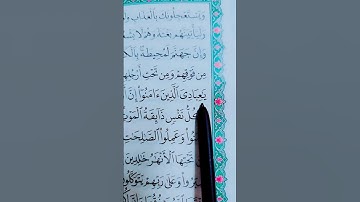 وَيَسْتَعْجِلُونَكَ بِالْعَذَابِ وَلَ
وَلَيَأْتِيَنَّهُم بَغْتَةً وَهُمْ لَا يَشْ
وَإِنَّ جَهَنَّمَ لَمُحِيطَةٌ بِالْكَ
مِن فَوْقِهِمْ وَمِن تَحْتِ أَرْجُلِهِ
يَٰعِبَادِيَ الَّذِينَ ءَامَنُوٓا۟ إِنَّ أَ
كُلُّ نَفْسٍ ذَآئِقَةُ الْمَوْتِ
وَعَمِلُوا۟ الصَّٰلِحَٰتِ
تَحْتِهَا الْأَنْهَٰرُ خَٰلِدِينَ
وَعَلَىٰ رَبِّهِمْ يَتَوَكَّلُونَ